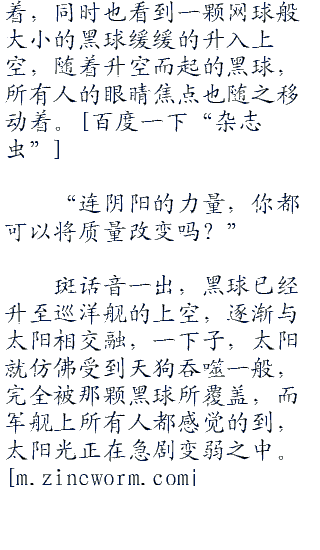 着，同时也看到一颗网球般
大小的黑球缓缓的升入上
空，随着升空而起的黑球，
所有人的眼睛焦点也随之移
动着。[百度一下“杂志
虫”]
“连阴阳的力量，你都
可以将质量改变吗？”
斑话音一出，黑球已经
升至巡洋舰的上空，逐渐与
太阳相交融，一下子，太阳
就仿佛受到天狗吞噬一般，
完全被那颗黑球所覆盖，而
军舰上所有人都感觉的到，
太阳光正在急剧变弱之中。
[m.zincworm.com]